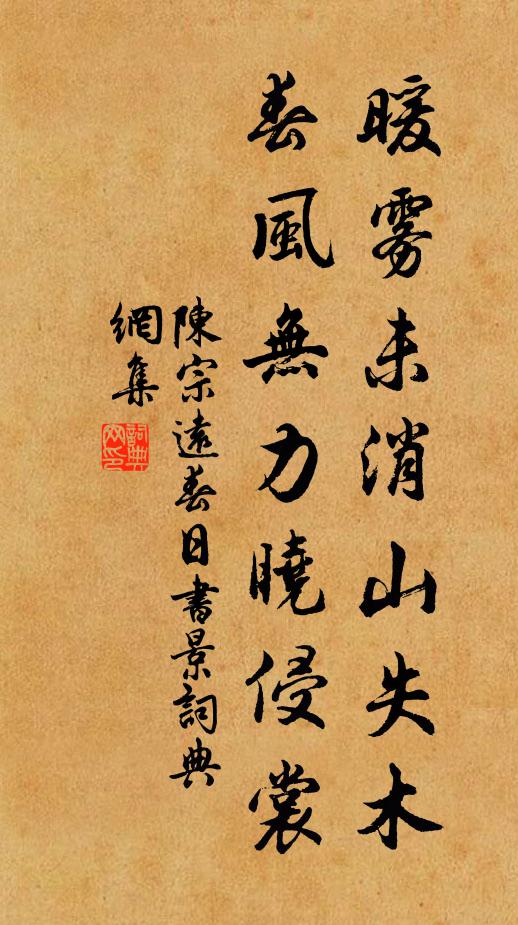 暖雾未消山失木
春風無力曉侵裳
陳宗遠春日書景詞典
網集
詞典網印